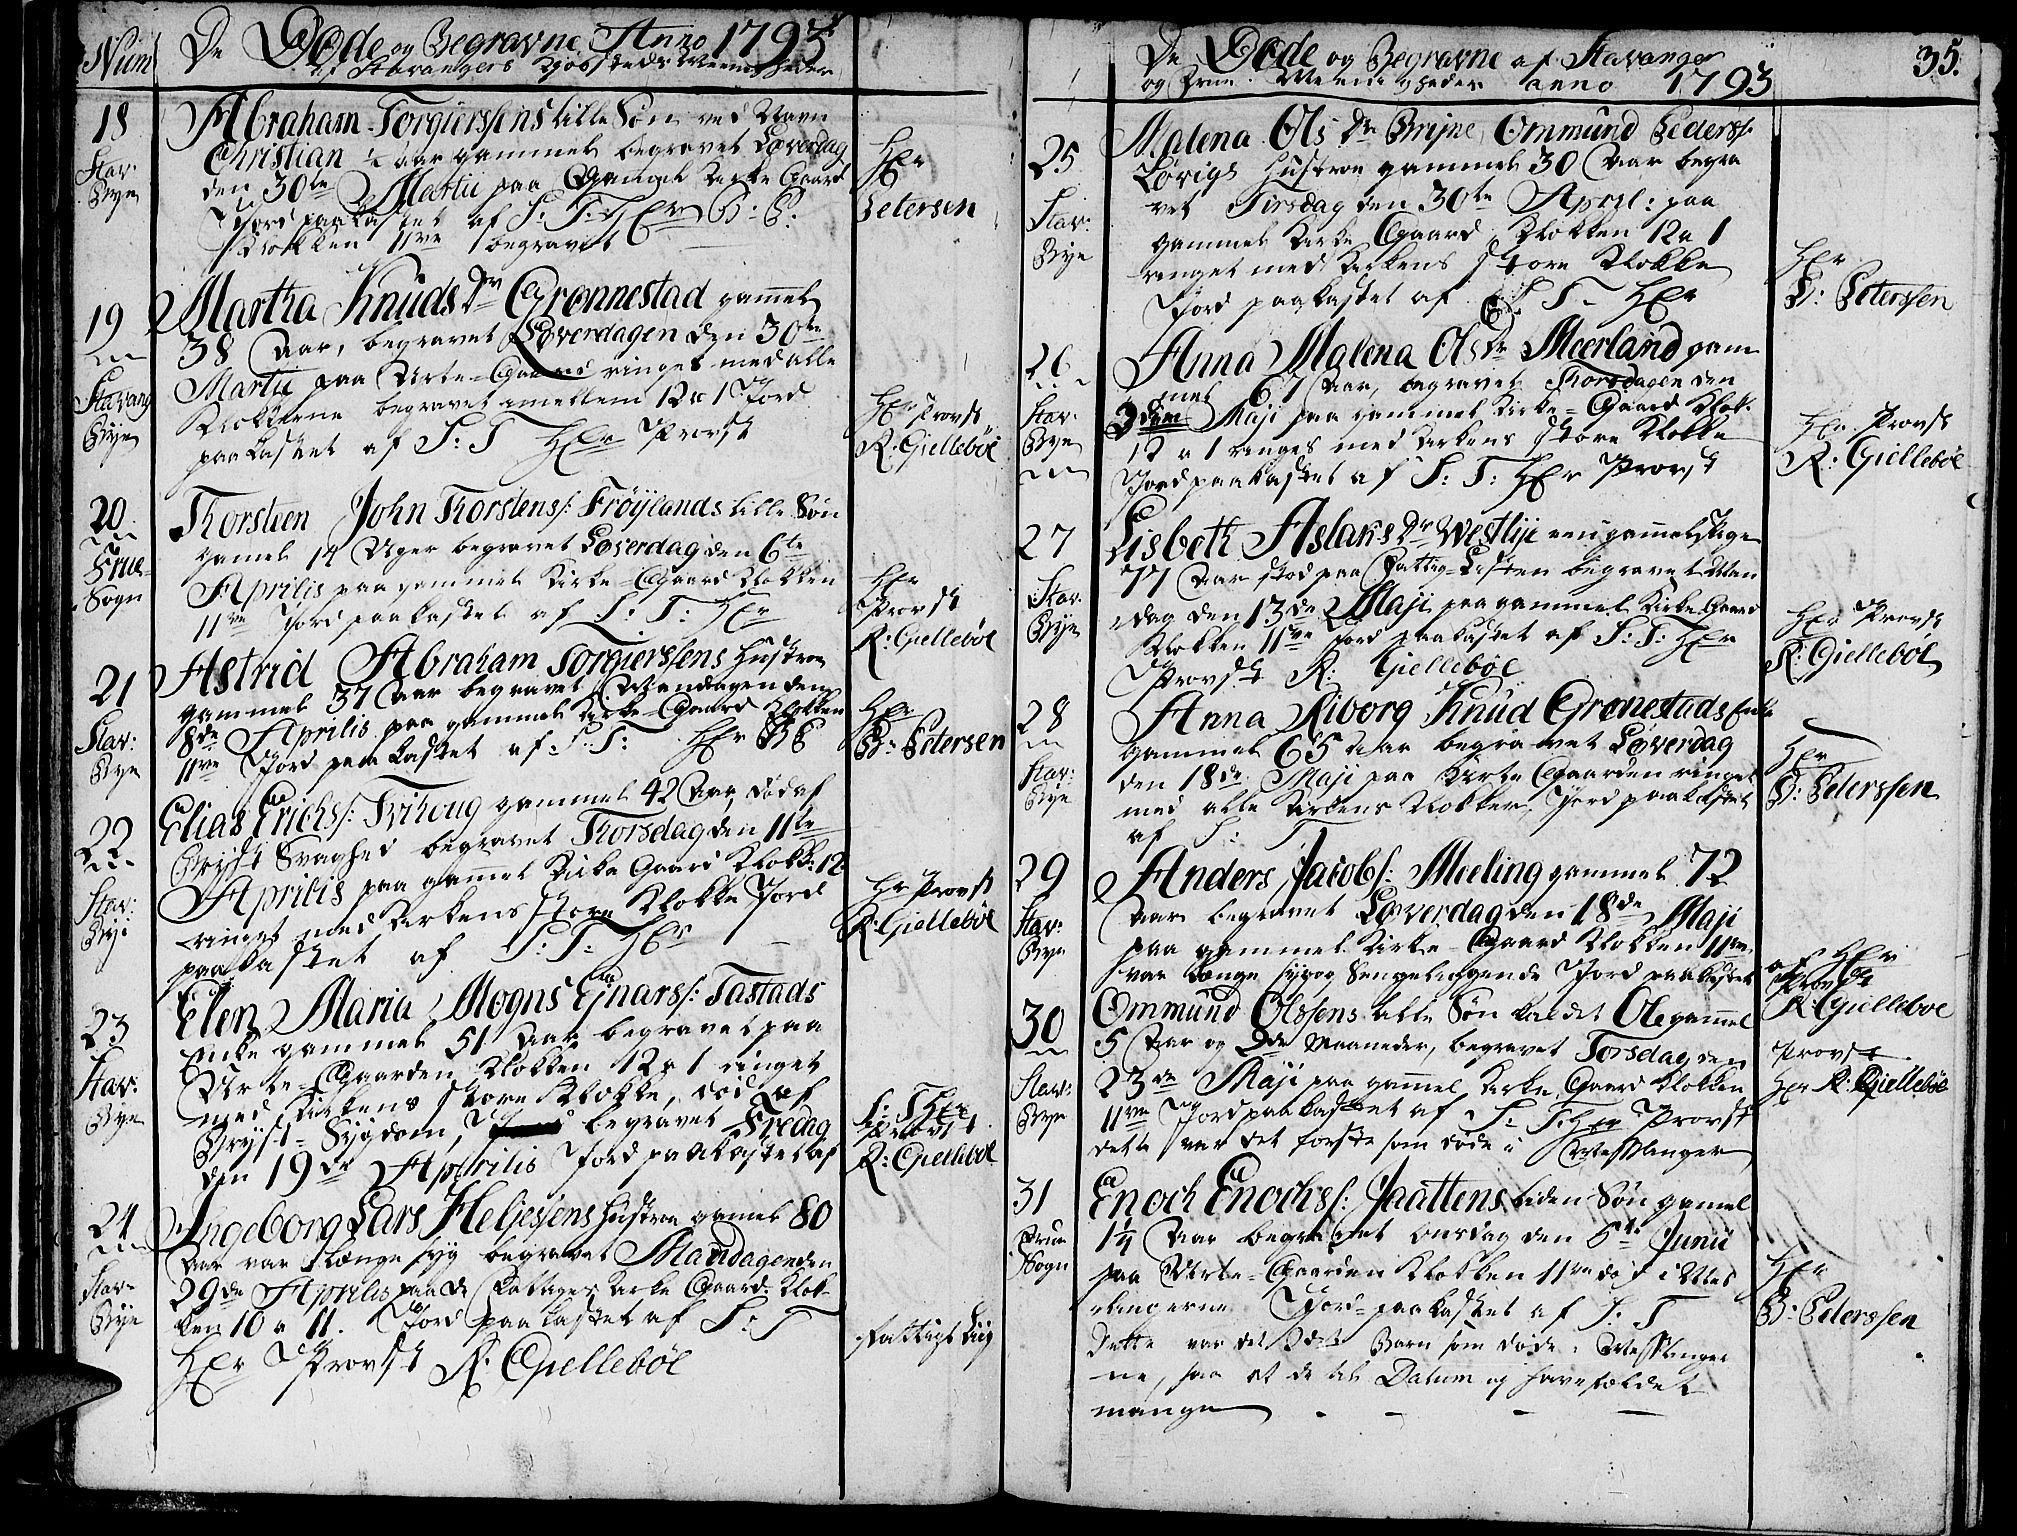 Num
De Døde og Begravne Anno 1793
af Stavangers Kiøbsteds Meenigheder
18
Stav:
Bye
Abraham Torgierssens lille Søn ved Navn
Christian ½ aar gammel begravet Løverdag
den 30te Martii paa Gamel Kirke Gaard
Jord paakastet af S: T: Her B: P.
Klokken 11ve begravet
Her
Petersen
19
Stavang
Bye
Martha Knuds Dr Grønnestad gamel
38 Aar, begravet Løverdagen den 30te
Martii paa Urte-Gaard ringet med alle
Klokkerne begravet imellem 12 a 1 Jord
paakastet af S: T Her Provst
Her Provst
R: Giellebøl
20
Frue
Sogn
Thorsteen John Thorstens/: Frøylands lille Søn
gamel 14 Uger begravet Løverdag den 6te
Aprilis paa gammel Kirke-Gaard Klokken
11ve Jord paakastet af S: T: Her
Her
Provst
R: Giellebøl
21
Stav:
Bye
Astrid Abraham Torgierssens Hustroe
gammel 37 Aar begravet Mandagen den
8de Aprilis paa gammel Kirke-Gaard Klokken
11ve Jord paakastet af S: T: Her B P
Her
B: Petersen
22
Stav:
Bye
Elias Erichs/: Trihoug gammel 42 Aar, død af
Bryst Svaghed begravet Thorsdag den 11te
Aprilis paa gamel Kirke Gaard Klokk: 12
ringet med Kirkens Store Klokke Jord
paakastet af S: T: Her
Hr Provst
R: Giellebøl
23
Stav:
Bye
Elen Maria Mogns Ejnars/: Tastads
Enke gammel 51 Aar begravet paa
Urte-Gaarden Klokken 12 a 1 ringet
med Kirkens store Klokke, død af
Bryst-Sygdom, begravet Fredag
den 19de Aprilis Jord paakastet af
S: T Her
Provst
R: Giellebøl
24
Stav-
Bye
Ingeborg Lars Heljessens Hustroe gamel 80
Aar var længe syg begravet Mandagen den
29de Aprilis paa de Fattiges Kirke Gaard: Klok-
ken 10 a 11. Jord paakastet af S: T
Her Provst R. Giellebøl
Fattigt Liig
De Døde og Begravne af Stavanger
og Frue Meenigheder anno 1793
35.
25
Stav:
Bye
Malena Ols Dr Bryne Ommund Peders/:
Lørvigs Hustroe gammel 30 Aar begra
vet Tirsdag den 30te Apryl: paa
gammel Kirke Gaard Klokken 12 a 1
ringet med Kirkens store Klokke
Jord paakastet af S T- Her
Her
B: Peterssen
26
Stav:
Bye
Anna Malena Ols Dr Meerland gam
mel 67 Aar, begravet Thorsdagen den
2den Maji paa gammel Kirke-Gaard Klok-
12 a 1 ringet med Kirkens store Klokke
Jord paakastet af S: T: Her Provst
Her Provst
R: Giellebøl
27
Stav:
Bye
Lisbeth Aslaks Dr Westlije een gamel Pige
77 Aar stod paa Fattig-Listen begravet Man
dag den 13de Maji paa gammel Kirke-Gaard
Klokken 11ve Jord paakastet af S: T: Her
Provst R: Giellebøl
Her Provst
R: Giellebøl
28
Stav:
Bye
Anna Riborg Knud Grønestads Enke
gammel 65 Aar begravet Løverdag
den 18de Maji paa Urte Gaarden ringet
med alle Kirkens Klokker, Jord paakastet
af S: T
Her
B: Peterssen
29
Stav:
Bye
Anders Jacobs/: Meeling gammel 72
Aar begravet Løverdag den 18de Maji
paa gammel Kirke-Gaard Klokken 11ve
var længe syg og Sengeliggende Jord paakastet
af Her
Provst
R: Giellebøl
30
Stav:
Bye
Ommund Olssens lille Søn kaldet Ole gamel
5 Aar og 2de Maaneder, begravet Torsdag den
23de Maji paa gamel Kirke Gaard Klokken
11ve Jord paakastet af S: T: Her Provst
dette var det første som døde i Messlinger
Provst
Her R: Giellebøl
31
Frue
Sogn
Enoch Enochs/: Jaattens liden Søn gamel
1¼ Aar begravet onsdag den 5te Junii
paa Urte-Gaarden Klokken 11ve død i Mes
lingerne Jord-paakastet af S: T
Dette var det 2det Barn som døde i Messlinger
ne, saa at de til Datum ej have fældet
mange - - -
Her
B: Peterssen